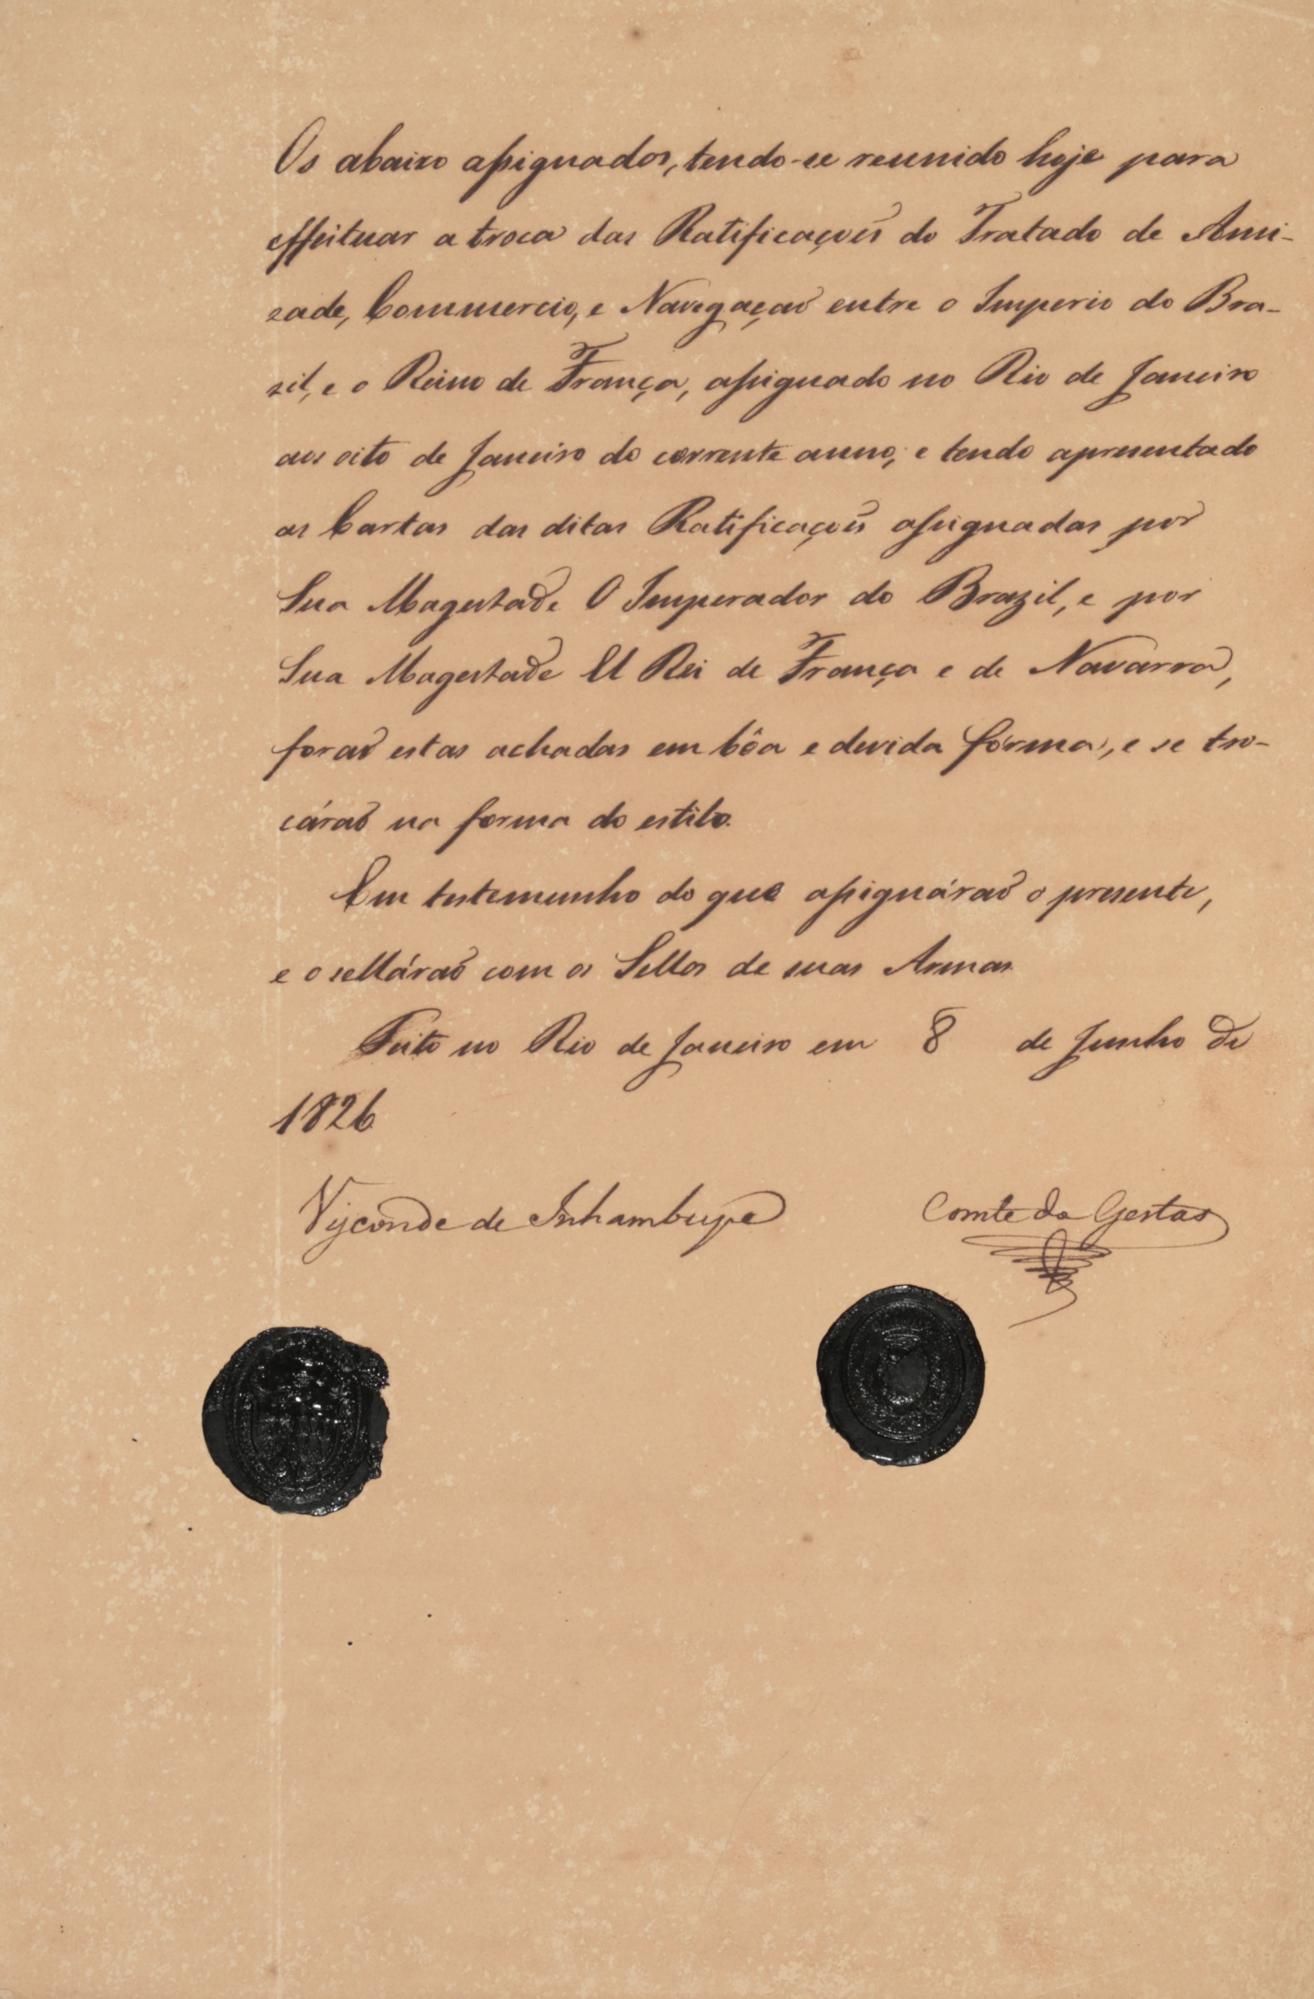 Os abaixo assignados, tendo-se reunido hoje para
effeituar a troca das Ratificaçoẽs do Tratado de Ami-
zade, Commercio, e Navegaçaõ entre o Imperio do Bra-
zil, e o Reino de França, assignado no Rio de Janeiro
aos oito de Janeiro do corrente anno, e tendo apresentado
as Cartas das ditas Ratificaçoẽs assignadas por
Sua Magestade O Imperador do Brazil, e por
Sua Magestade El Rei de França e de Navarra,
foraõ estas achadas em bôa e devida fórma, e se tro-
cáraõ na forma do estilo.
Em testemunho do que assignáraõ o presente,
e o selláraõ com os Sellos de suas Armas
Feito no Rio de Janeiro em 8 de Junho de
1826
Visconde de Inhambupe Comte de Gestas